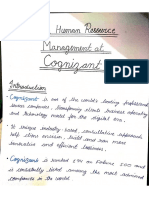 Human Resource
Management at
Cognizant
Introduction
• Cognizant is one of the world's leading professional
services companies, transforming clients business, operating
and technology model for the digital era.
• It unique industry based, consultative approach
helps clients and run more
innovative and efficient business.
• Cognizant is ranked 194 on Fortune 500 and
is consistently listed among the most admired
companies in the world